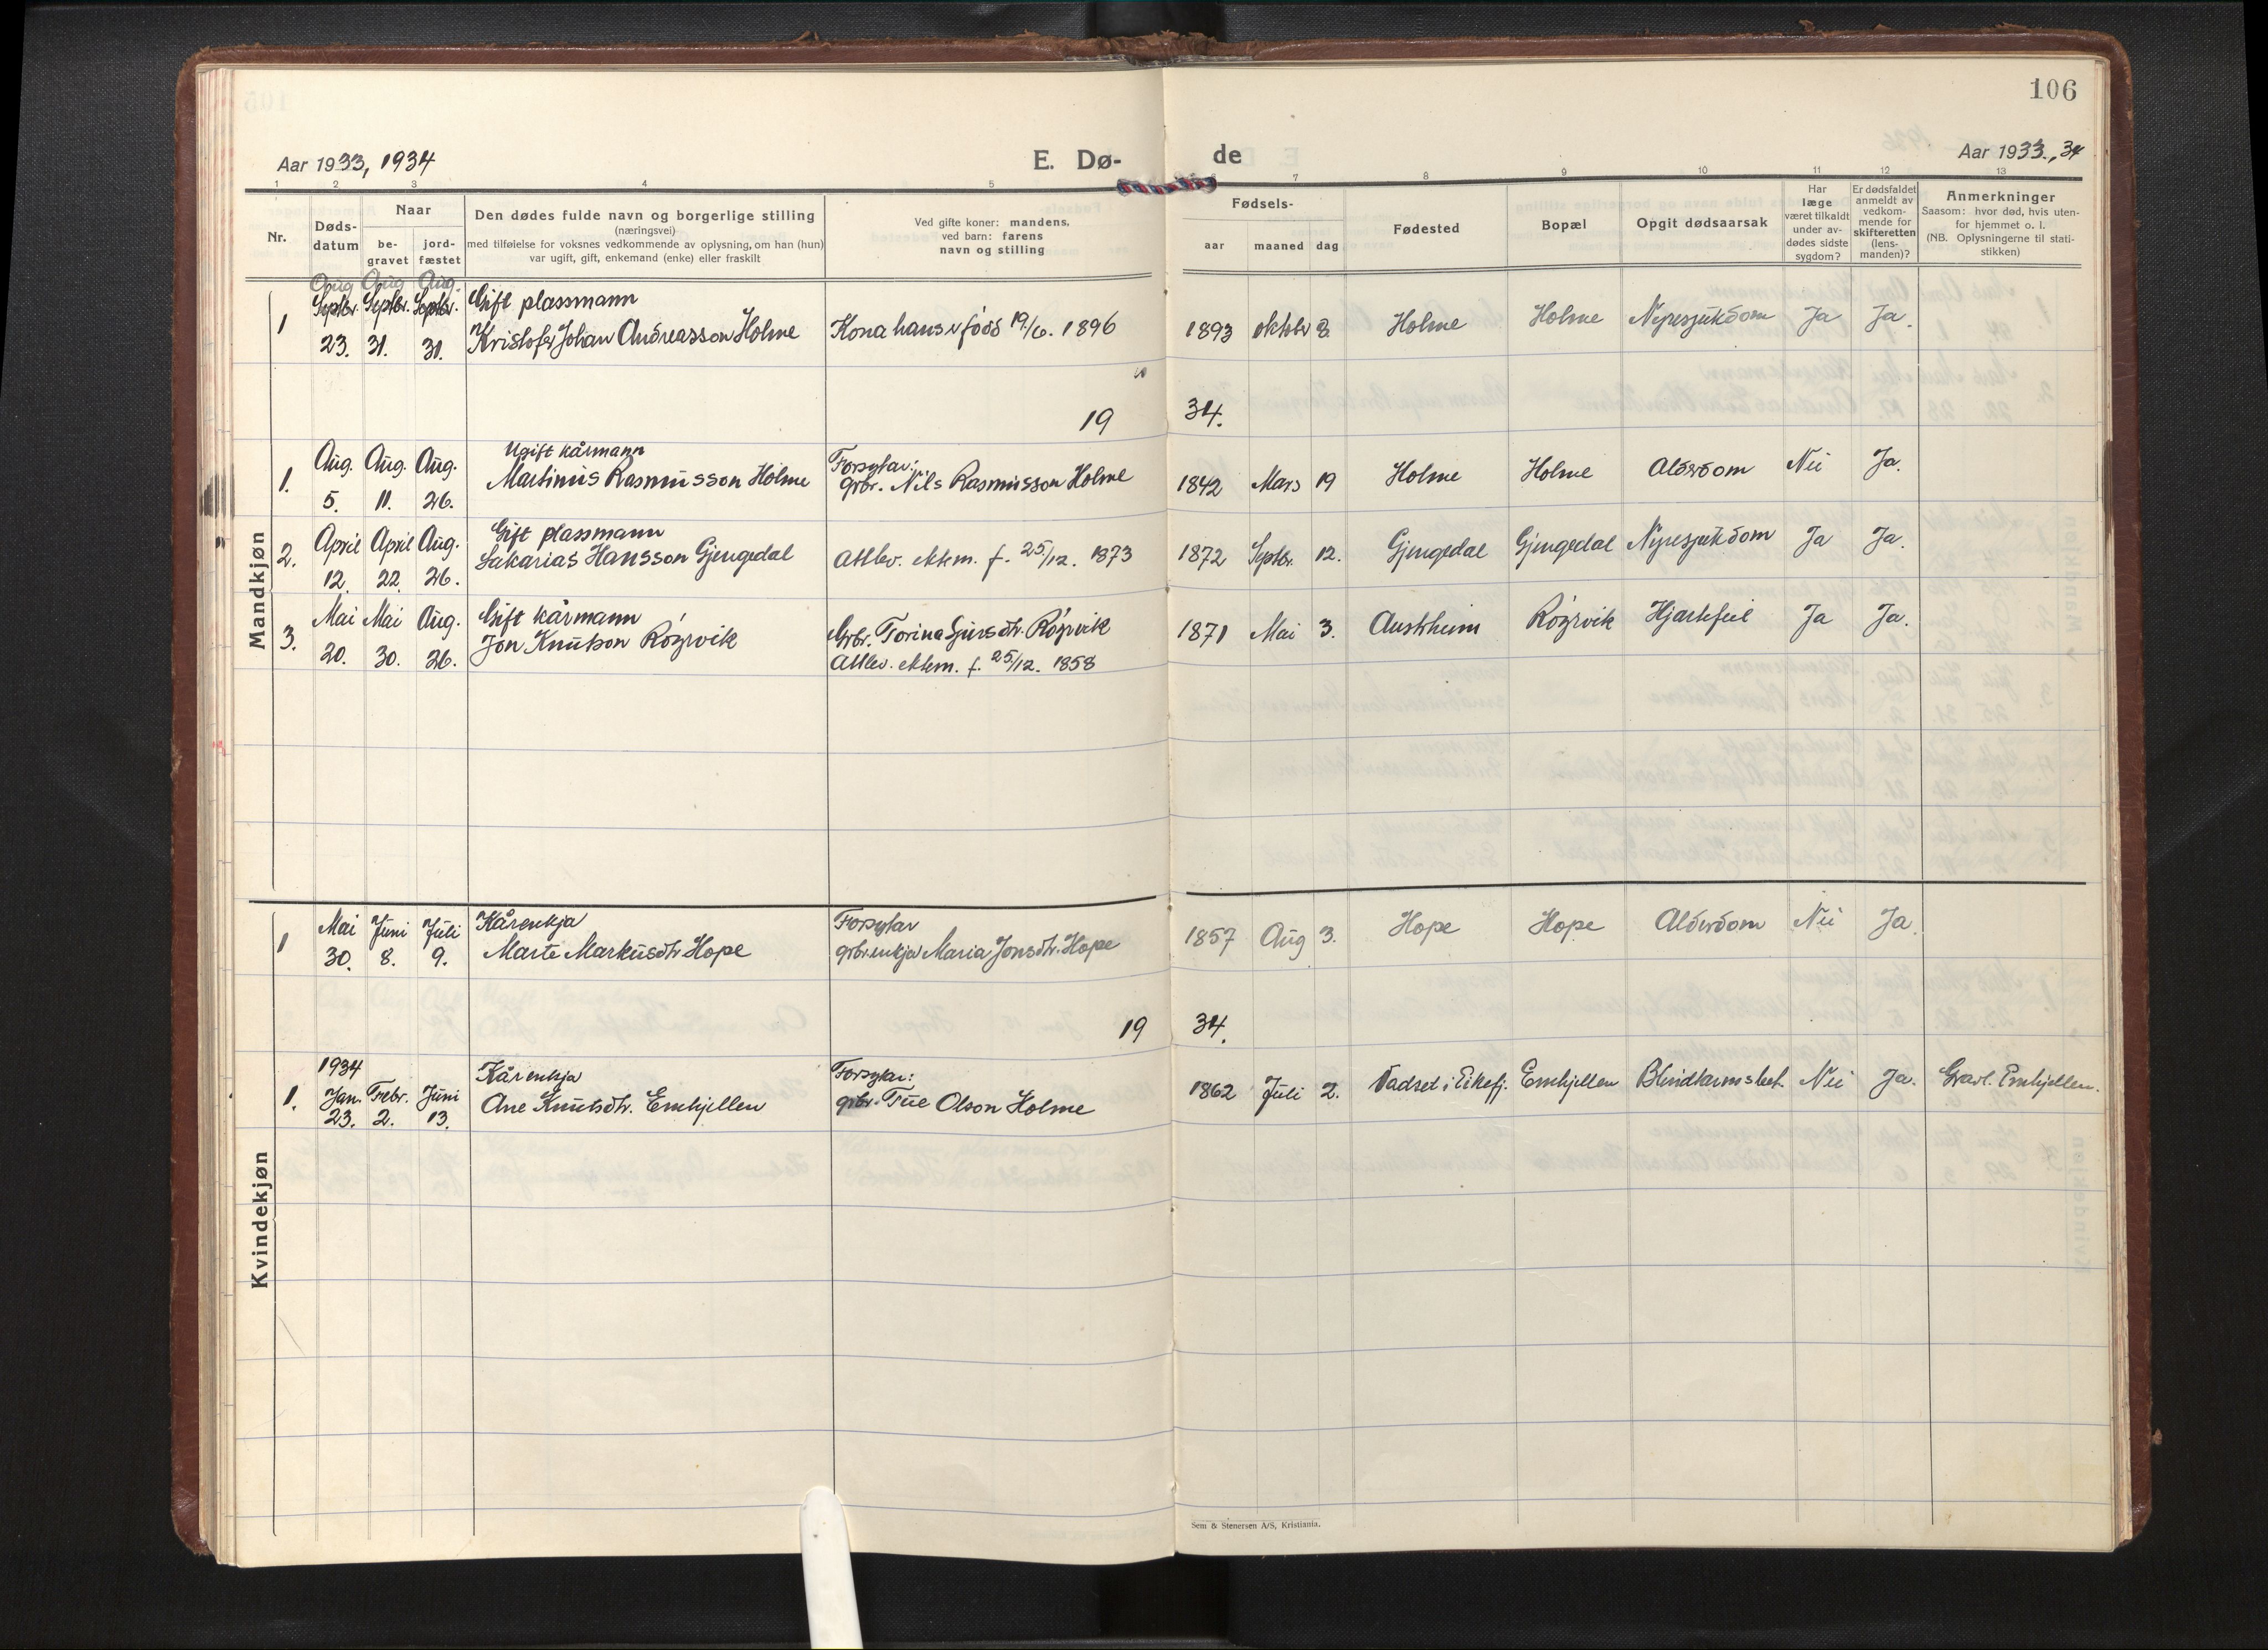 106
Aar 1933, 1934
E. Dø-
de
Aar 1933, 34
1 2 3 4 5 6 7 8 9 10 11 12 13
Nr.
Døds-
datum
Naar
be-
gravet
jord-
fæstet
Den dødes fulde navn og borgerlige stilling
(næringsvei)
med tilføielse for voksnes vedkommende av oplysning, om han (hun)
var ugift, gift, enkemand (enke) eller fraskilt
Ved gifte koner: mandens,
ved barn: farens
navn og stilling
Fødsels-
aar maaned dag
Fødested
Bopæl
Opgit dødsaarsak
Har
læge
været tilkaldt
under av-
dødes sidste
sygdom?
Er dødsfaldet
anmeldt av
vedkom-
mende for
skifteretten
(lens-
manden)?
Anmerkninger
Saasom: hvor død, hvis uten-
for hjemmet o. l.
(NB. Oplysningerne til stati-
stikken)
Mandkjøn
Aug Aug Aug.
Septbr. Septbr. Septbr. Gift plassmann
1 23. 31. 31. Kristofer Johan Andreasson Holme Kona hans er född 19/6. 1896 1893 oktobr 8. Holme Holme Nyresjukdom Ja Ja.
19 34.
Aug. Aug. Aug. Ugift kårmann Forsytar:
1. 5. 11. 26. Martinus Rasmusson Holme grbr. Nils Rasmusson Holme 1842 Mars 19 Holme Holme Alderdom Nei Ja.
April April Aug. Gift plassmann
2. 12. 22. 26. Sakarias Hansson Gjengedal Attlev. ektem. f. 25/12. 1873 1872 Septbr. 12. Gjengedal Gjengedal Nyresjukdom Ja Ja.
Mai Mai Aug. Gift kårmann Grbr. Torina Sjursdtr. Röyrvik
3. 20. 30. 26. Jon Knutson Röyrvik Attlev. ektem. f. 25/12. 1858 1871 Mai 3. Austrheim Röyrvik Hjartefeil Ja Ja.
Kvindekjøn
Mai Juni Juli Kårenkja Forsytar
1 30. 8. 9. Marte Markusdtr Hope grbr.enkja Maria Jonsdtr. Hope 1857 Aug 3. Hope Hope Alderdom Nei Ja.
19 34.
1934 Kårenkja Forsytar:
1. Jan. Febr. Juni Ane Knutsdtr. Emhjellen grbr. Tue Olson Holme 1862 Juli 2. Vadset i Eikefj. Emhjellen Blindtarmsbet. Nei Ja. Gravl. Emhjellen.
23. 2. 13.
Sem & Stenersen A/S, Kristiania.